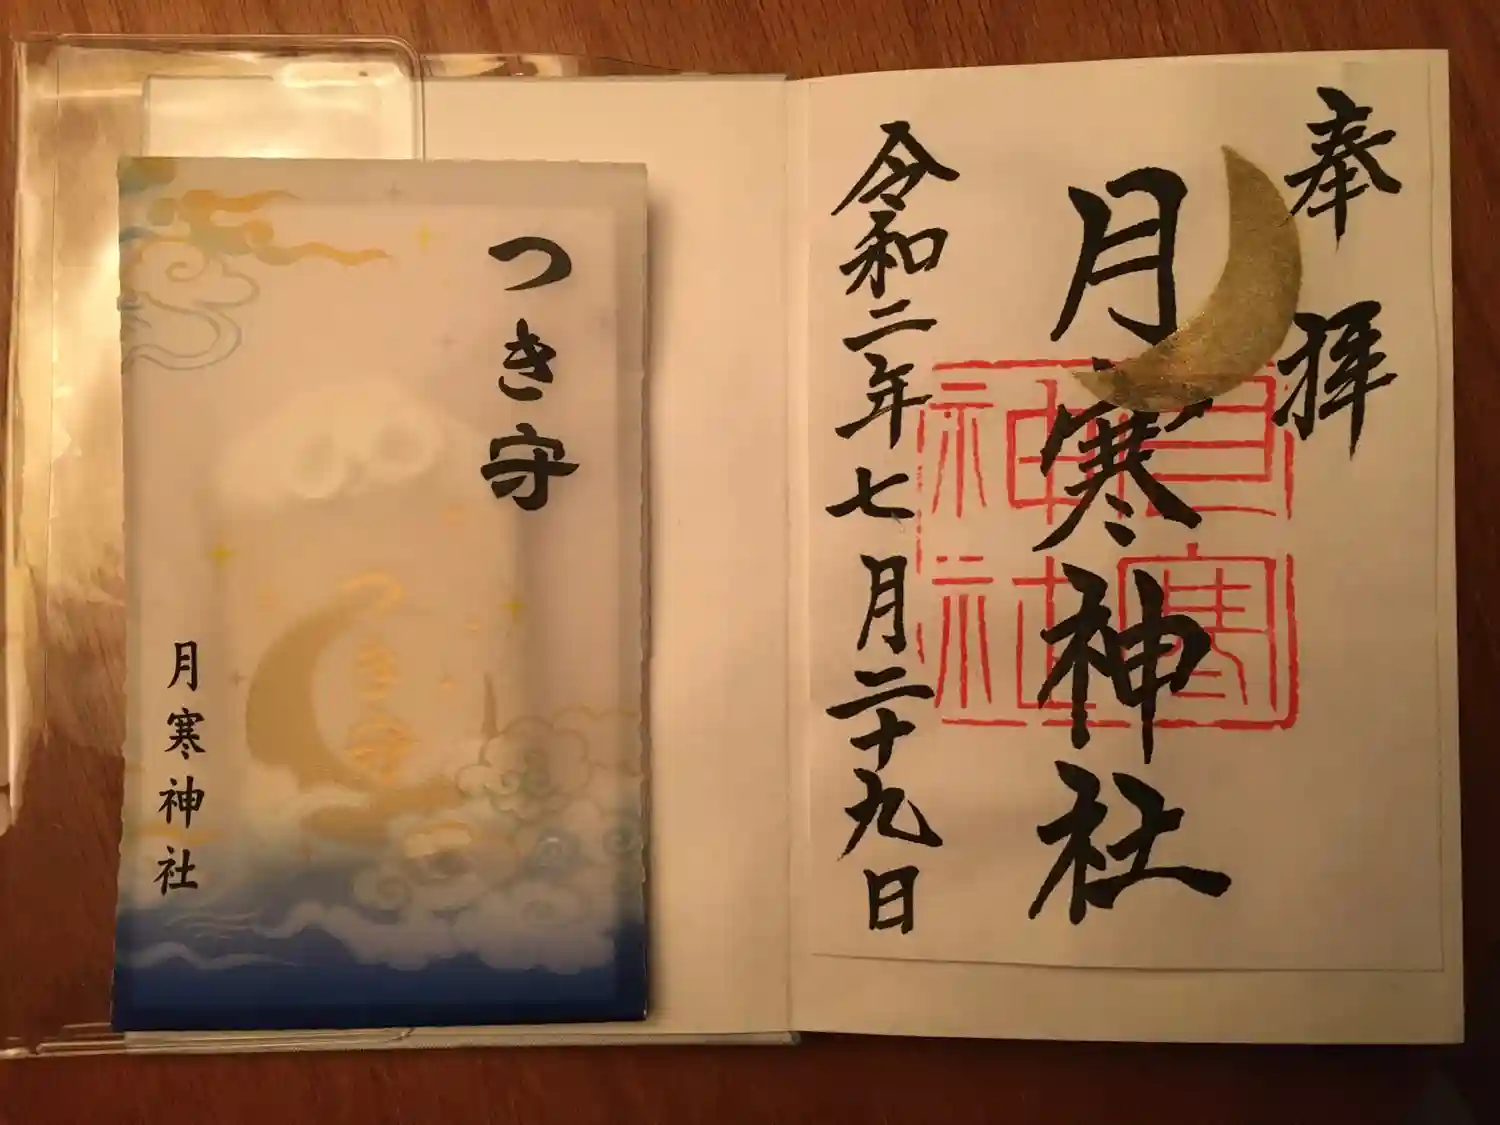 奉拝
月寒神社
令和二年七月二十九日
月寒神社
つき守
つき守
月寒神社